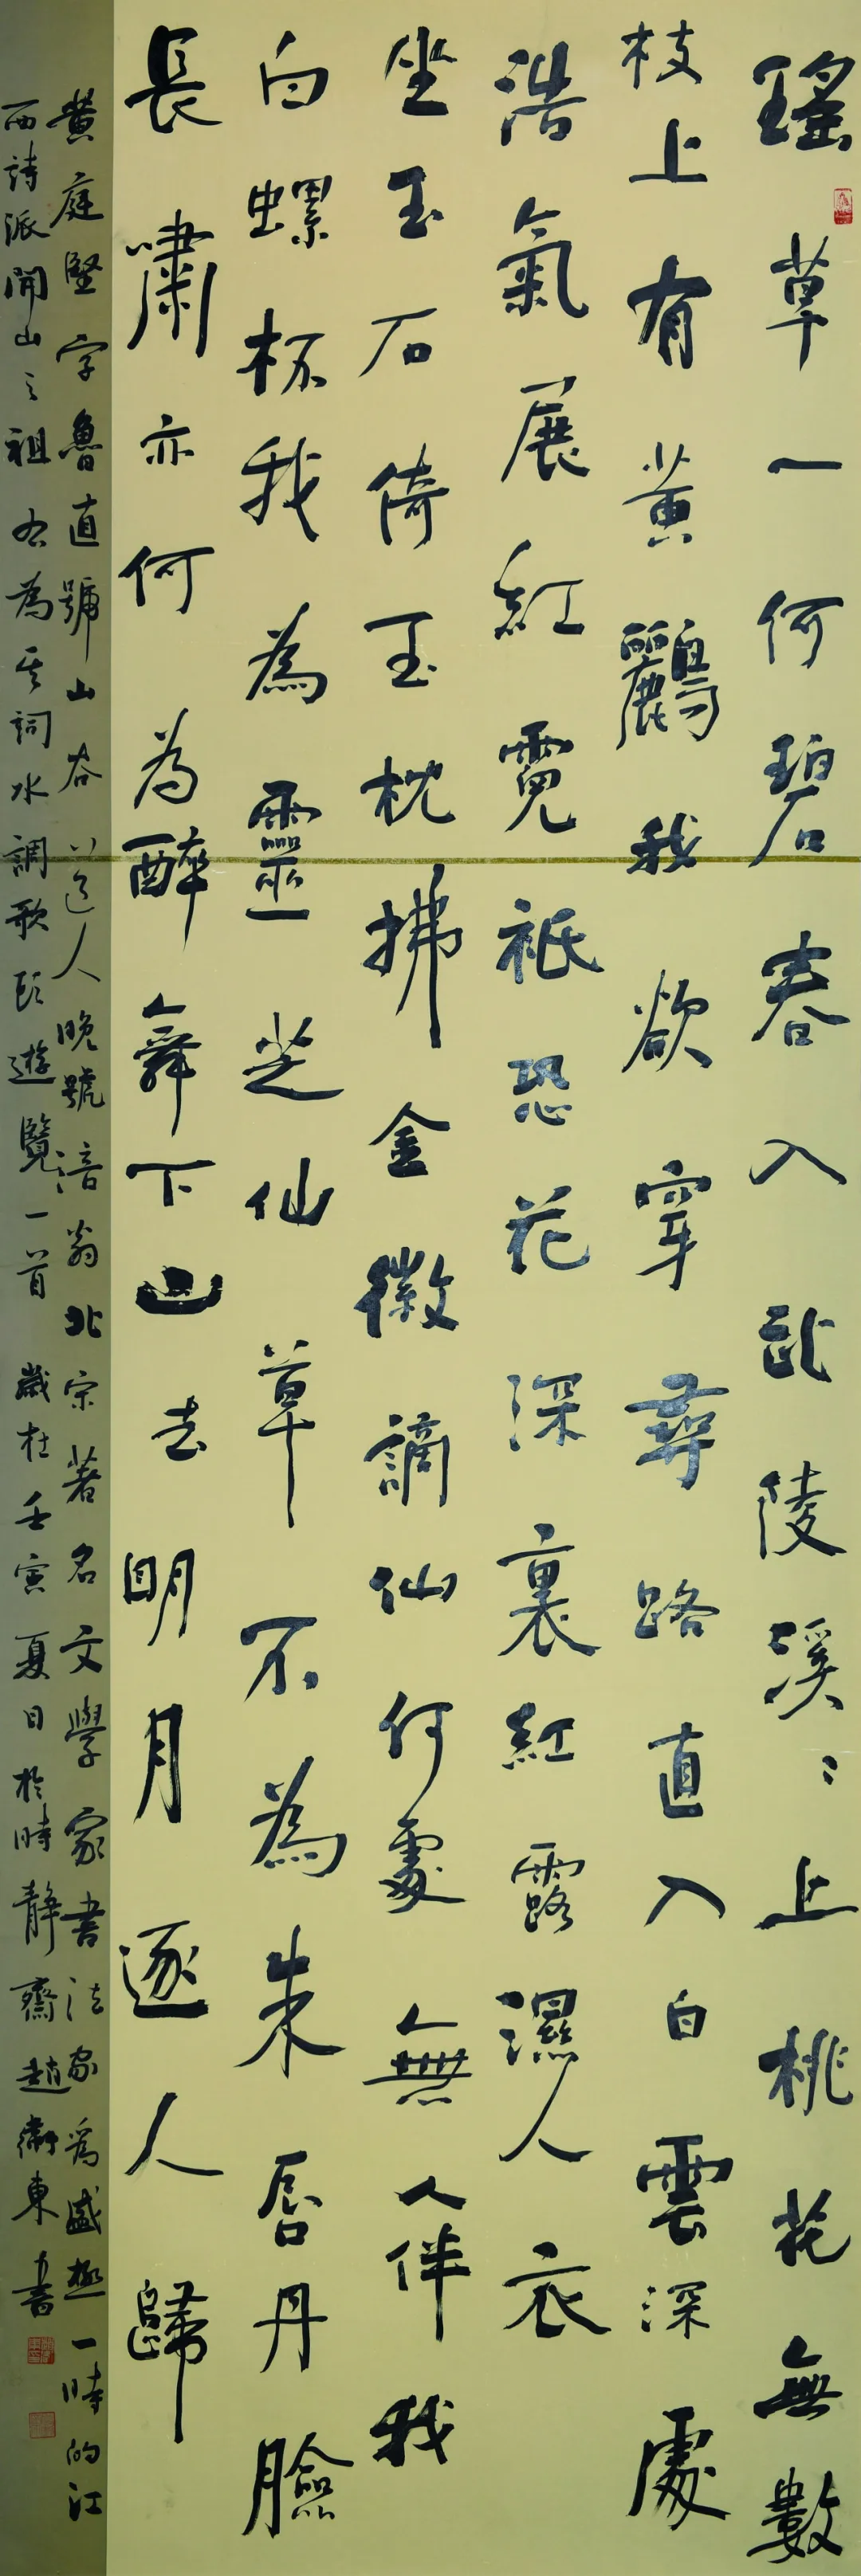 瑤草一何碧春入武陵溪〻上桃花無數
枝上有黃鸝我欲穿尋路直入白雲深處
浩氣展紅霓祇恐花深裏紅露濕人衣
坐玉石倚玉枕拂金徽謫仙何處無人伴我
白螺杯我為靈芝仙草不為朱唇丹臉
長嘯亦何為醉舞下山去明月逐人歸
黃庭堅字魯直號山谷道人晚號涪翁北宋著名文學家書法家爲盛極一時的江
西詩派開山之祖右為其詞水調歌頭遊覽一首歲在壬寅夏日於時靜齋趙衛東書